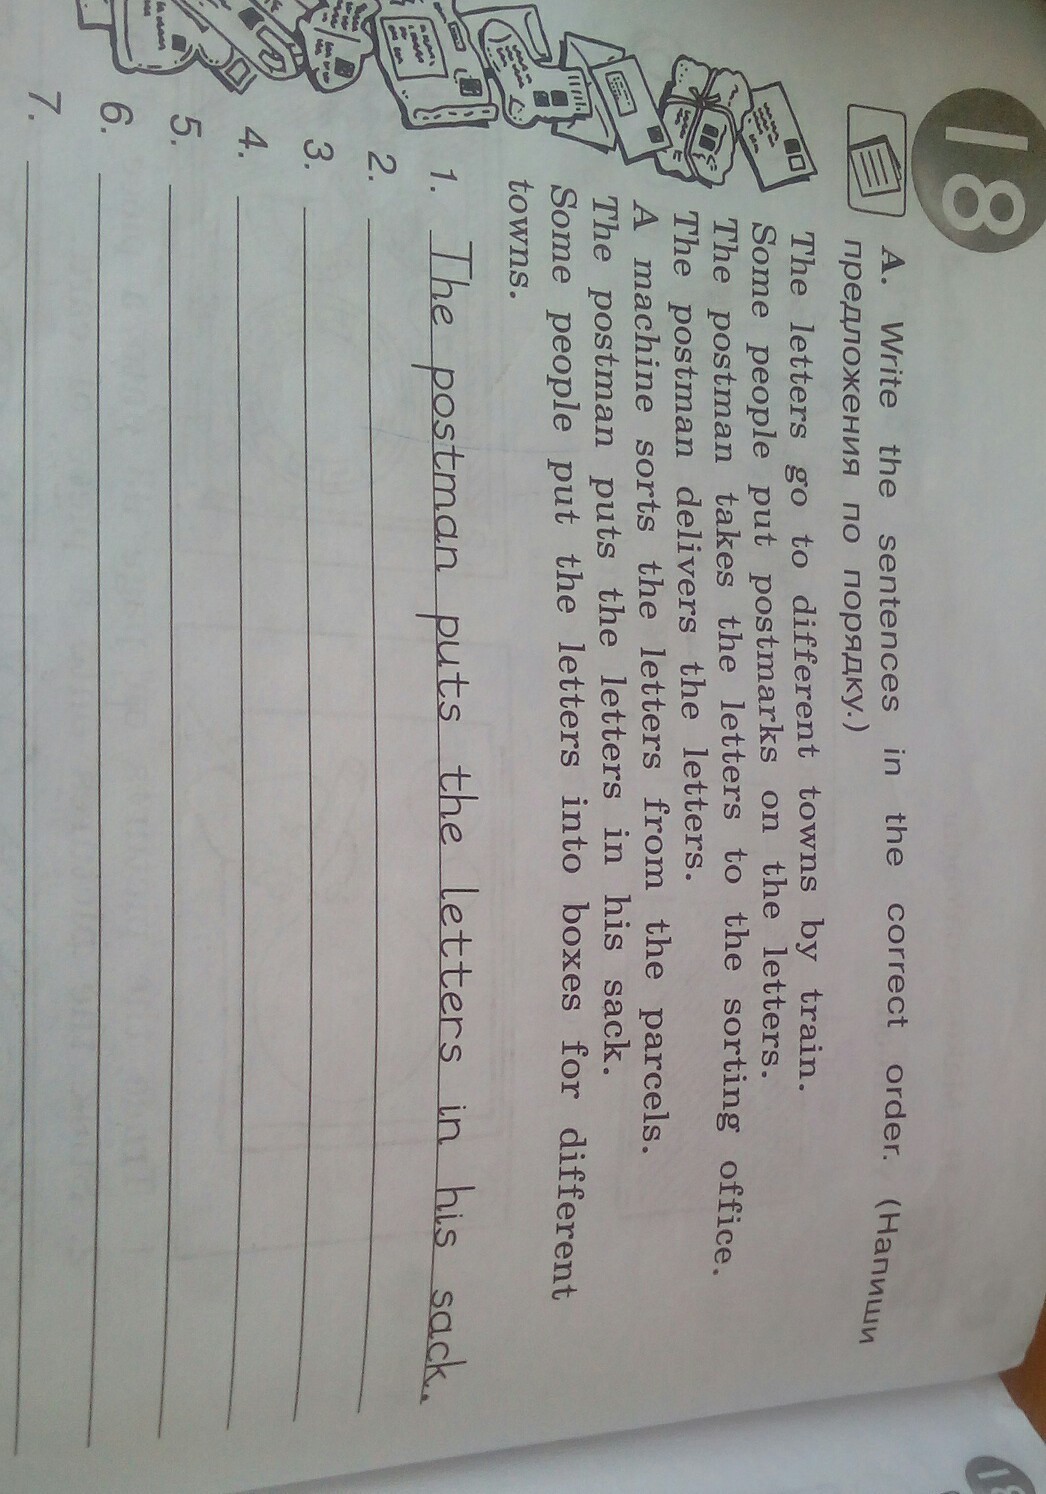 18
A. Write the sentences in the correct order. (Напиши
предложения по порядку.)
The letters go to different towns by train.
Some people put postmarks on the letters.
The postman takes the letters to the sorting office.
The postman delivers the letters.
A machine sorts the letters from the parcels.
The postman puts the letters in his sack.
Some people put the letters into boxes for different
towns.
1. The postman puts the letters in his sack.
2.
3.
4.
5.
6.
7.